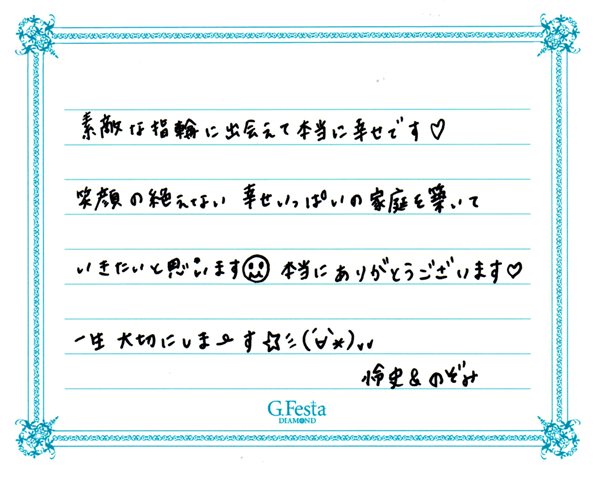 素敵な指輪に出会えて本当に幸せです♡
笑顔の絶えない 幸せいっぱいの家庭を築いて
いきたいと思います 本当にありがとうございます♡
一生大切にしま〜す☆ミ(´∀`*)vv
怜史 & のぞみ
G.Festa
DIAMOND